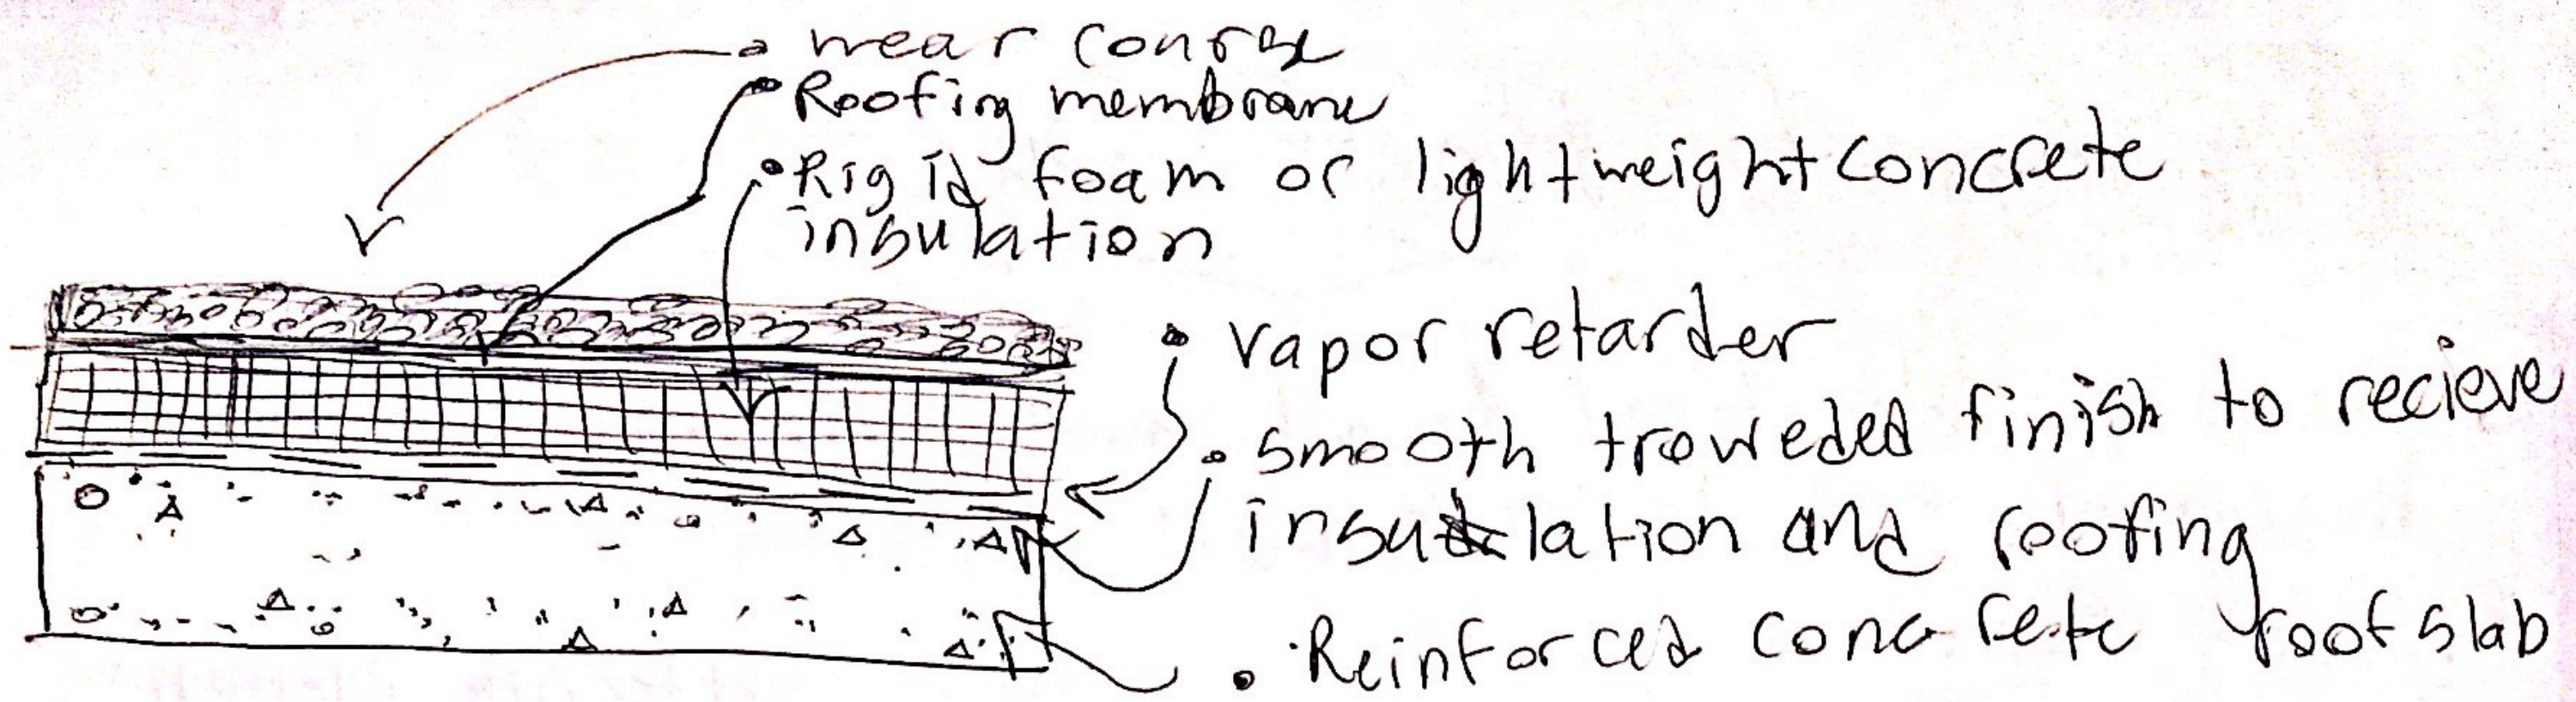 wear course
Roofing membrane
Rigid foam or lightweight concrete
insulation
vapor retarder
smooth troweded finish to recieve
insulation and roofing
Reinforced concrete roof slab